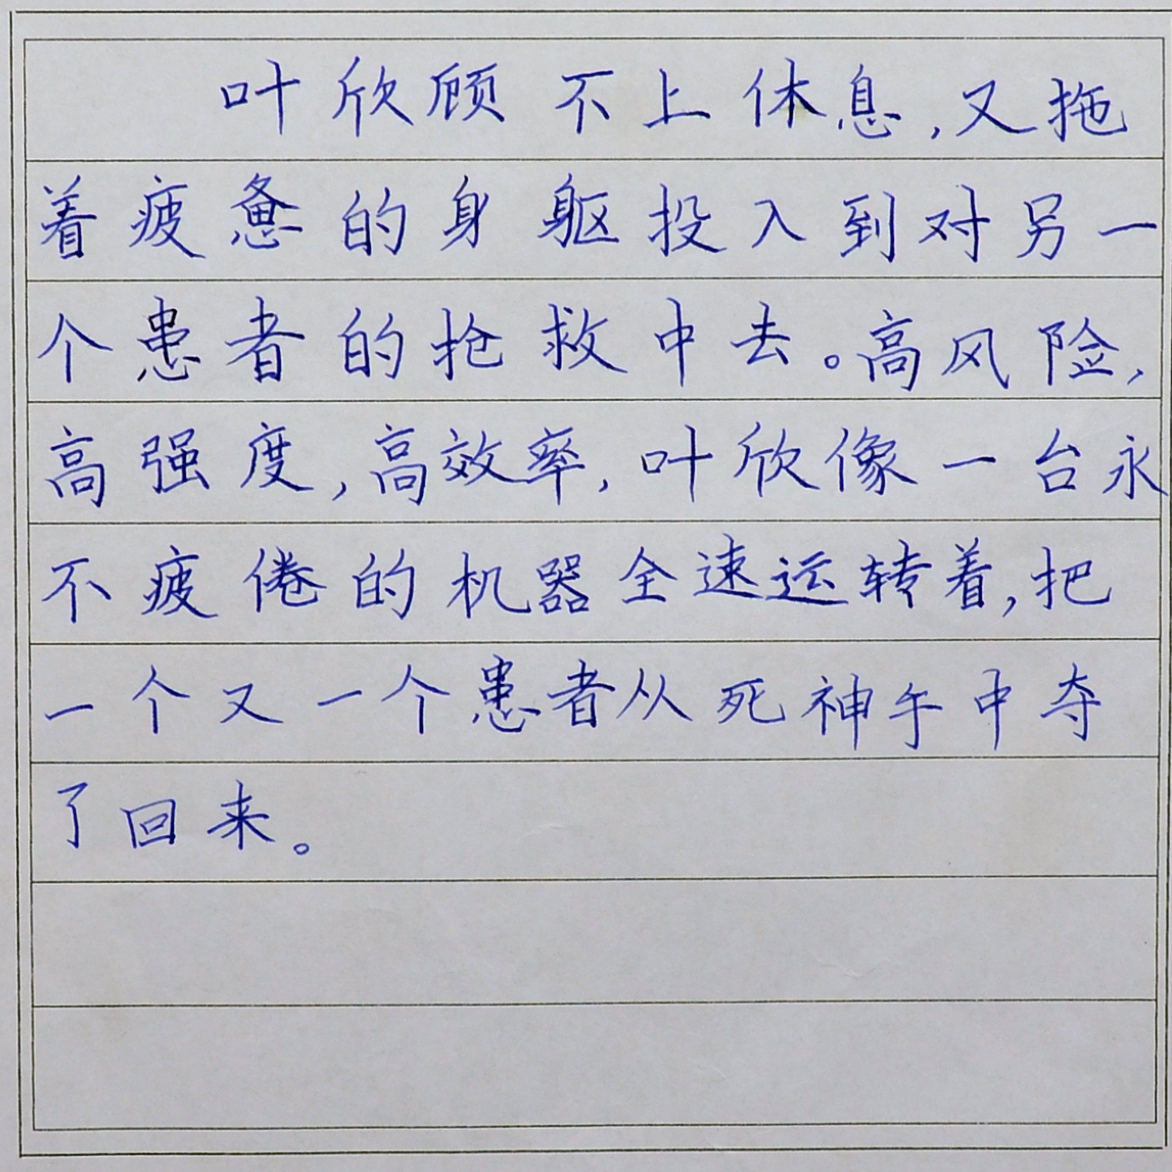 叶欣顾不上休息,又拖
着疲惫的身躯投入到对另一
个患者的抢救中去。高风险,
高强度,高效率,叶欣像一台永
不疲倦的机器全速运转着,把
一个又一个患者从死神手中夺
了回来。